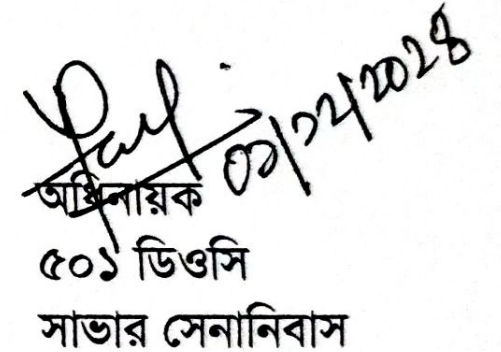 ০১/১২/২০২৪
অধিনায়ক
৫০১ ডিওসি
সাভার সেনানিবাস